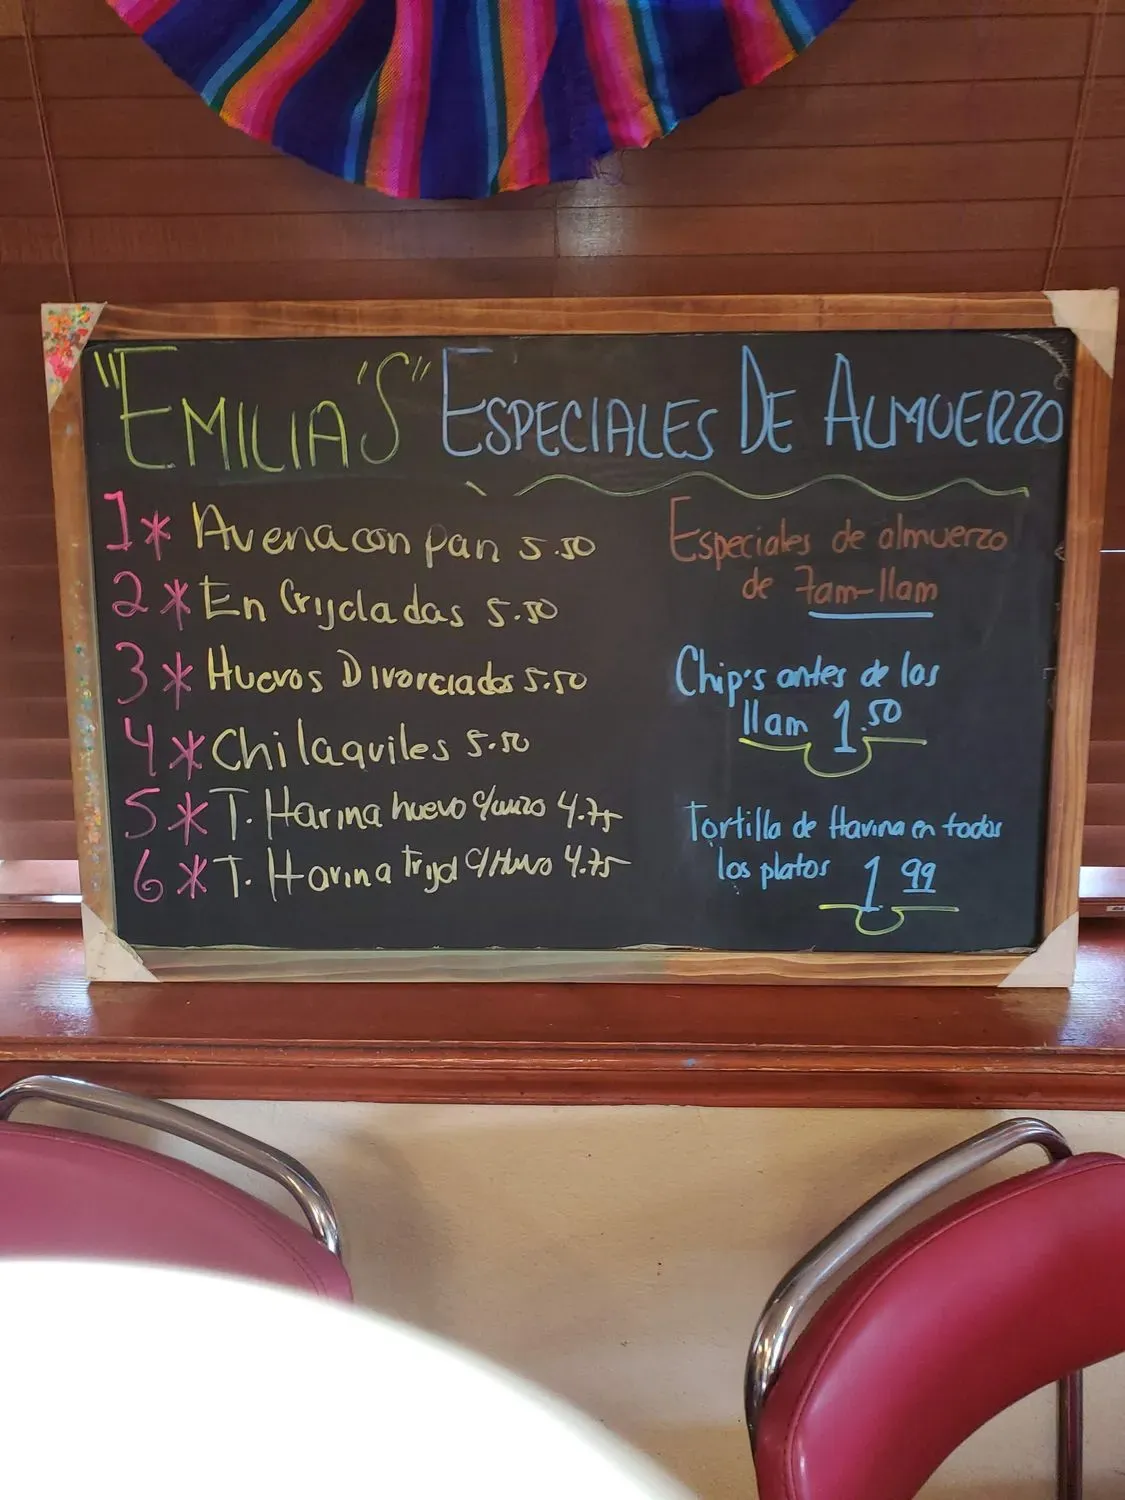 "EMILIA'S" ESPECIALES DE ALMUERZO
1* Avena con pan 5.50
2* Enfrijoladas 5.50
3* Huevos Divorciados 5.50
4* Chilaquiles 5.50
5* T. Harina huevo c/ 4.75
6* T. Harina frijol c/Huevo 4.75
Especiales de almuerzo
de 7am-11am
Chip's antes de las
11am 1.50
Tortilla de Harina en todos
los platos 1.99